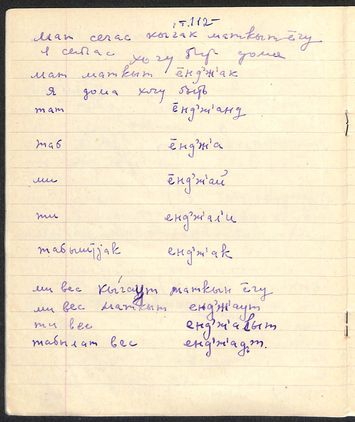 т.112
мат сечас кыгак маткын ёгу
я сейчас хочу быть дома
мат маткыт ёнд'ж'ак
я дома хочу быть
тат ёнд'ж'анд
таб ёнд'ж'а
ми ёнд'ж'ай
ти енд'ж'али
табыштjак енд'ж'ак
ми вес кыгаут маткын ёгу
ми вес маткыт енд'ж'аут
ти вес енд'ж'алыт
табылат вес енд'ж'адт.